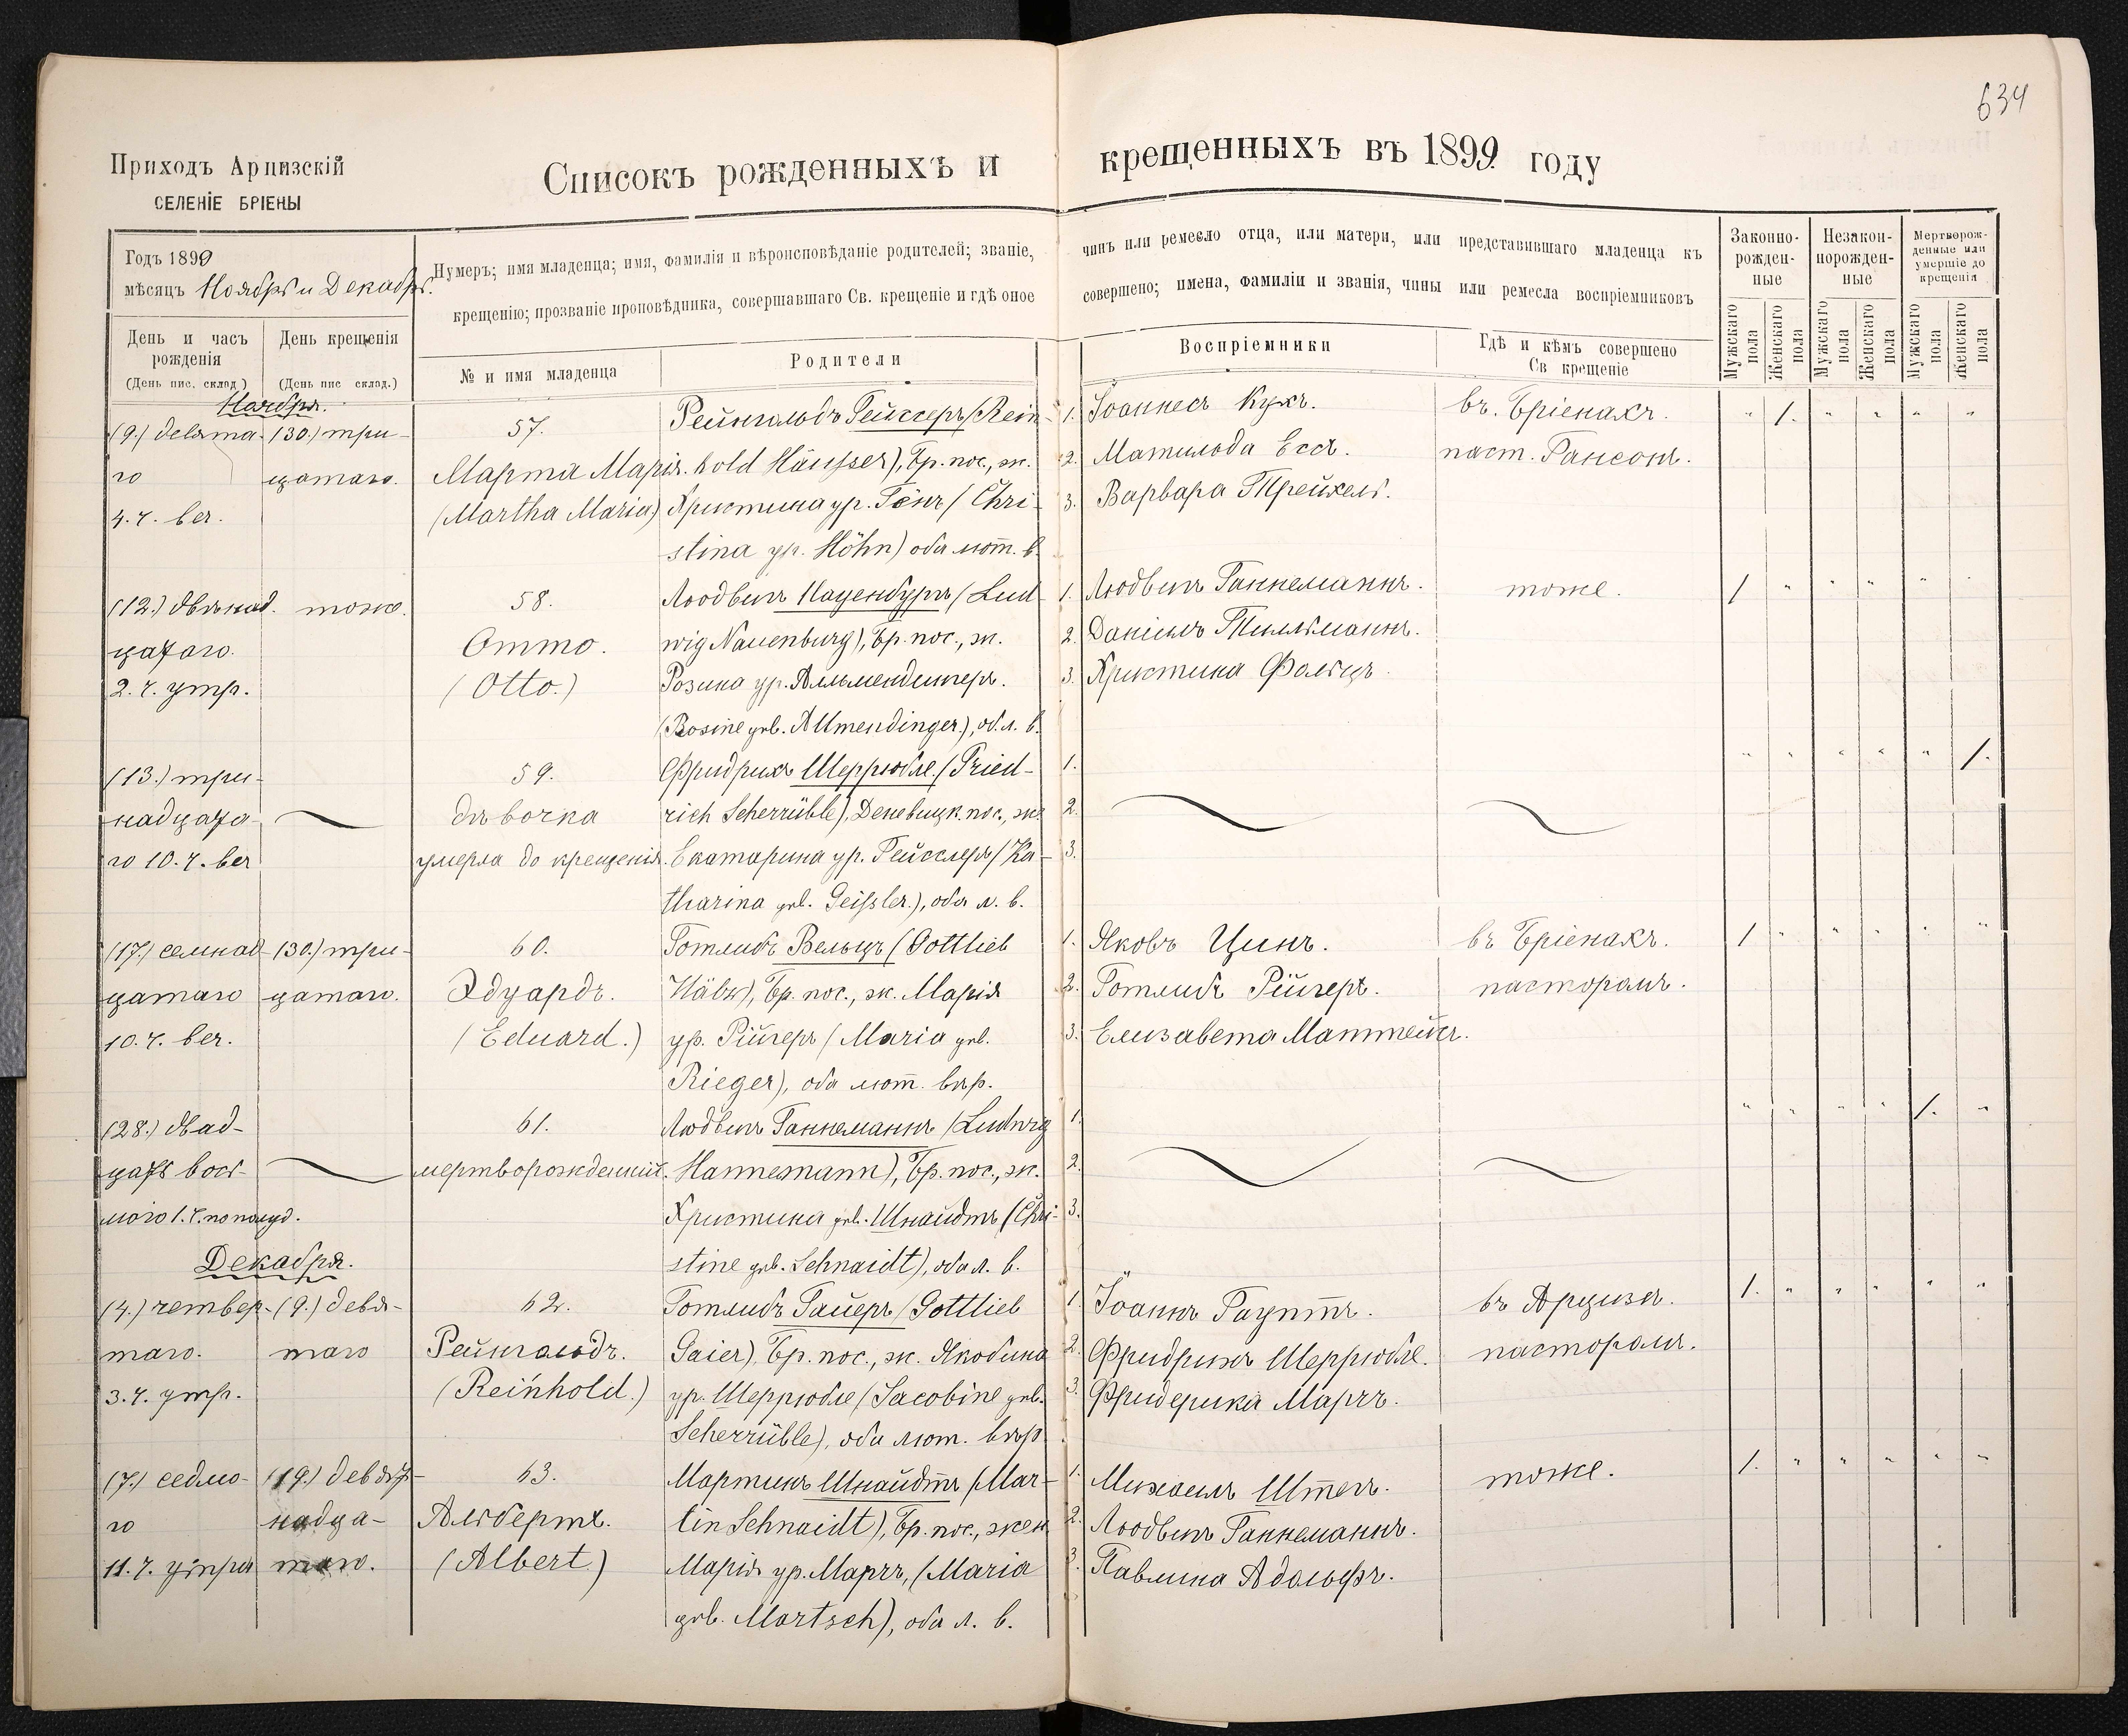 634
Приходъ Арцизскій
СЕЛЕНІЕ БРІЕНЫ
Списокъ рожденныхъ и крещенныхъ въ 1899 году
Годъ 1899
мѣсяцъ Ноябрь и Декабрь.
Нумеръ; имя младенца; имя, фамилія и вѣроисповѣданіе родителей; званіе,
крещенію; прозваніе проповѣдника, совершавшаго Св. крещеніе и гдѣ оное
чинъ или ремесло отца, или матери, или представившаго младенца къ
совершено; имена, фамиліи и званія, чины или ремесла воспріемниковъ
Законно-
рожден-
ные
Незакон-
норожден-
ные
Мертворож-
денные или
умершіе до
крещенія
День и часъ
рожденія
(День пис. склад)
День крещенія
(День пис склад.)
№ и имя младенца
Родители
Воспріемники
Гдѣ и кѣмъ совершено
Св крещеніе
Мужскаго пола
Женскаго пола
Мужскаго пола
Женскаго пола
Мужскаго пола
Женскаго пола
Ноября.
(9.) девята-
го
4. ч. веч.
(30.) три-
цатаго.
57.
Марта Марія.
(Martha Maria)
Рейнгольдъ Гейссеръ (Rein-
hold Häusser), Бр. пос., ж.
Христина ур. Гёнъ (Chri-
stina ур. Höhn) оба лют. в.
1. Іоаннесъ Кухъ.
2. Матильда Ессъ.
3. Варвара Трейхель.
въ Бріенахъ.
паст. Гансонъ.
" 1. " " " "
(12.) двѣнад.
цатаго.
2. ч. утр.
тоже.
58.
Отто.
(Otto.)
Людвигъ Науенбургъ (Lud-
wig Nauenburg), Бр. пос., ж.
Розина ур. Алльмендингеръ.
(Rosine урв. Allmendinger), об. л. в.
1. Людвигъ Ганнеманнъ.
2. Даніилъ Тилльманнъ.
3. Христина Фольцъ.
тоже.
1 " " " "
(13.) три-
надцата-
го 10. ч. веч
59.
дѣвочка
умерла до крещенія.
Фридрихъ Шеррюбле. (Fried-
rich Scherrüble), Деневицк. пос., ж.
Екатарина ур. Гейсслеръ (Ka-
tharina урв. Geissler.), оба л. в.
1.
2.
3.
" " " " " 1.
(17.) семнад-
цатаго
10. ч. веч.
(30.) три-
цатаго.
60.
Эдуардъ.
(Eduard.)
Готлибъ Вельцъ (Gottlieb
Wälz), Бр. пос., ж. Марія
ур. Рійгеръ (Maria урв.
Rieger), оба лют. вѣр.
1. Яковъ Цинъ.
2. Готлибъ Рійгеръ.
3. Елизавета Маттейсъ.
въ Бріенахъ.
пасторомъ.
1 " " " " "
(28.) двад-
цать вось-
мого 1. ч. по полуд.
61.
мертворожденній.
Людвигъ Ганнеманнъ (Ludwig
Hannemann), Бр. пос., ж.
Христина урв. Шнайдтъ (Chri-
stine урв. Schnaidt), оба л. в.
1.
2.
3.
" " " " 1. "
Декабря.
(4.) четвер-
таго.
3. ч. утр.
(9.) девя-
таго
62.
Рейнгольдъ.
(Reinhold.)
Готлибъ Гайеръ (Gottlieb
Gaier), Бр. пос., ж. Якобина
ур. Шеррюбле (Jacobine урв.
Scherrüble), оба лют. вѣр.
1. Іоаннъ Гауптъ.
2. Фридрихъ Шеррюбле.
3. Фридерика Марчъ.
въ Арцизѣ.
пасторомъ.
1. " " " " "
(7.) седмо-
го
11. ч. утра
(19.) девят-
надца-
таго.
63.
Альбертъ.
(Albert)
Мартинъ Шнайдтъ (Mar-
tin Schnaidt), Бр. пос., жен.
Марія ур. Марчъ, (Maria
урв. Martsch), оба л. в.
1. Михаилъ Штегъ.
2. Людвигъ Ганнеманнъ.
3. Павлина Адольфъ.
тоже.
1. " " " " "